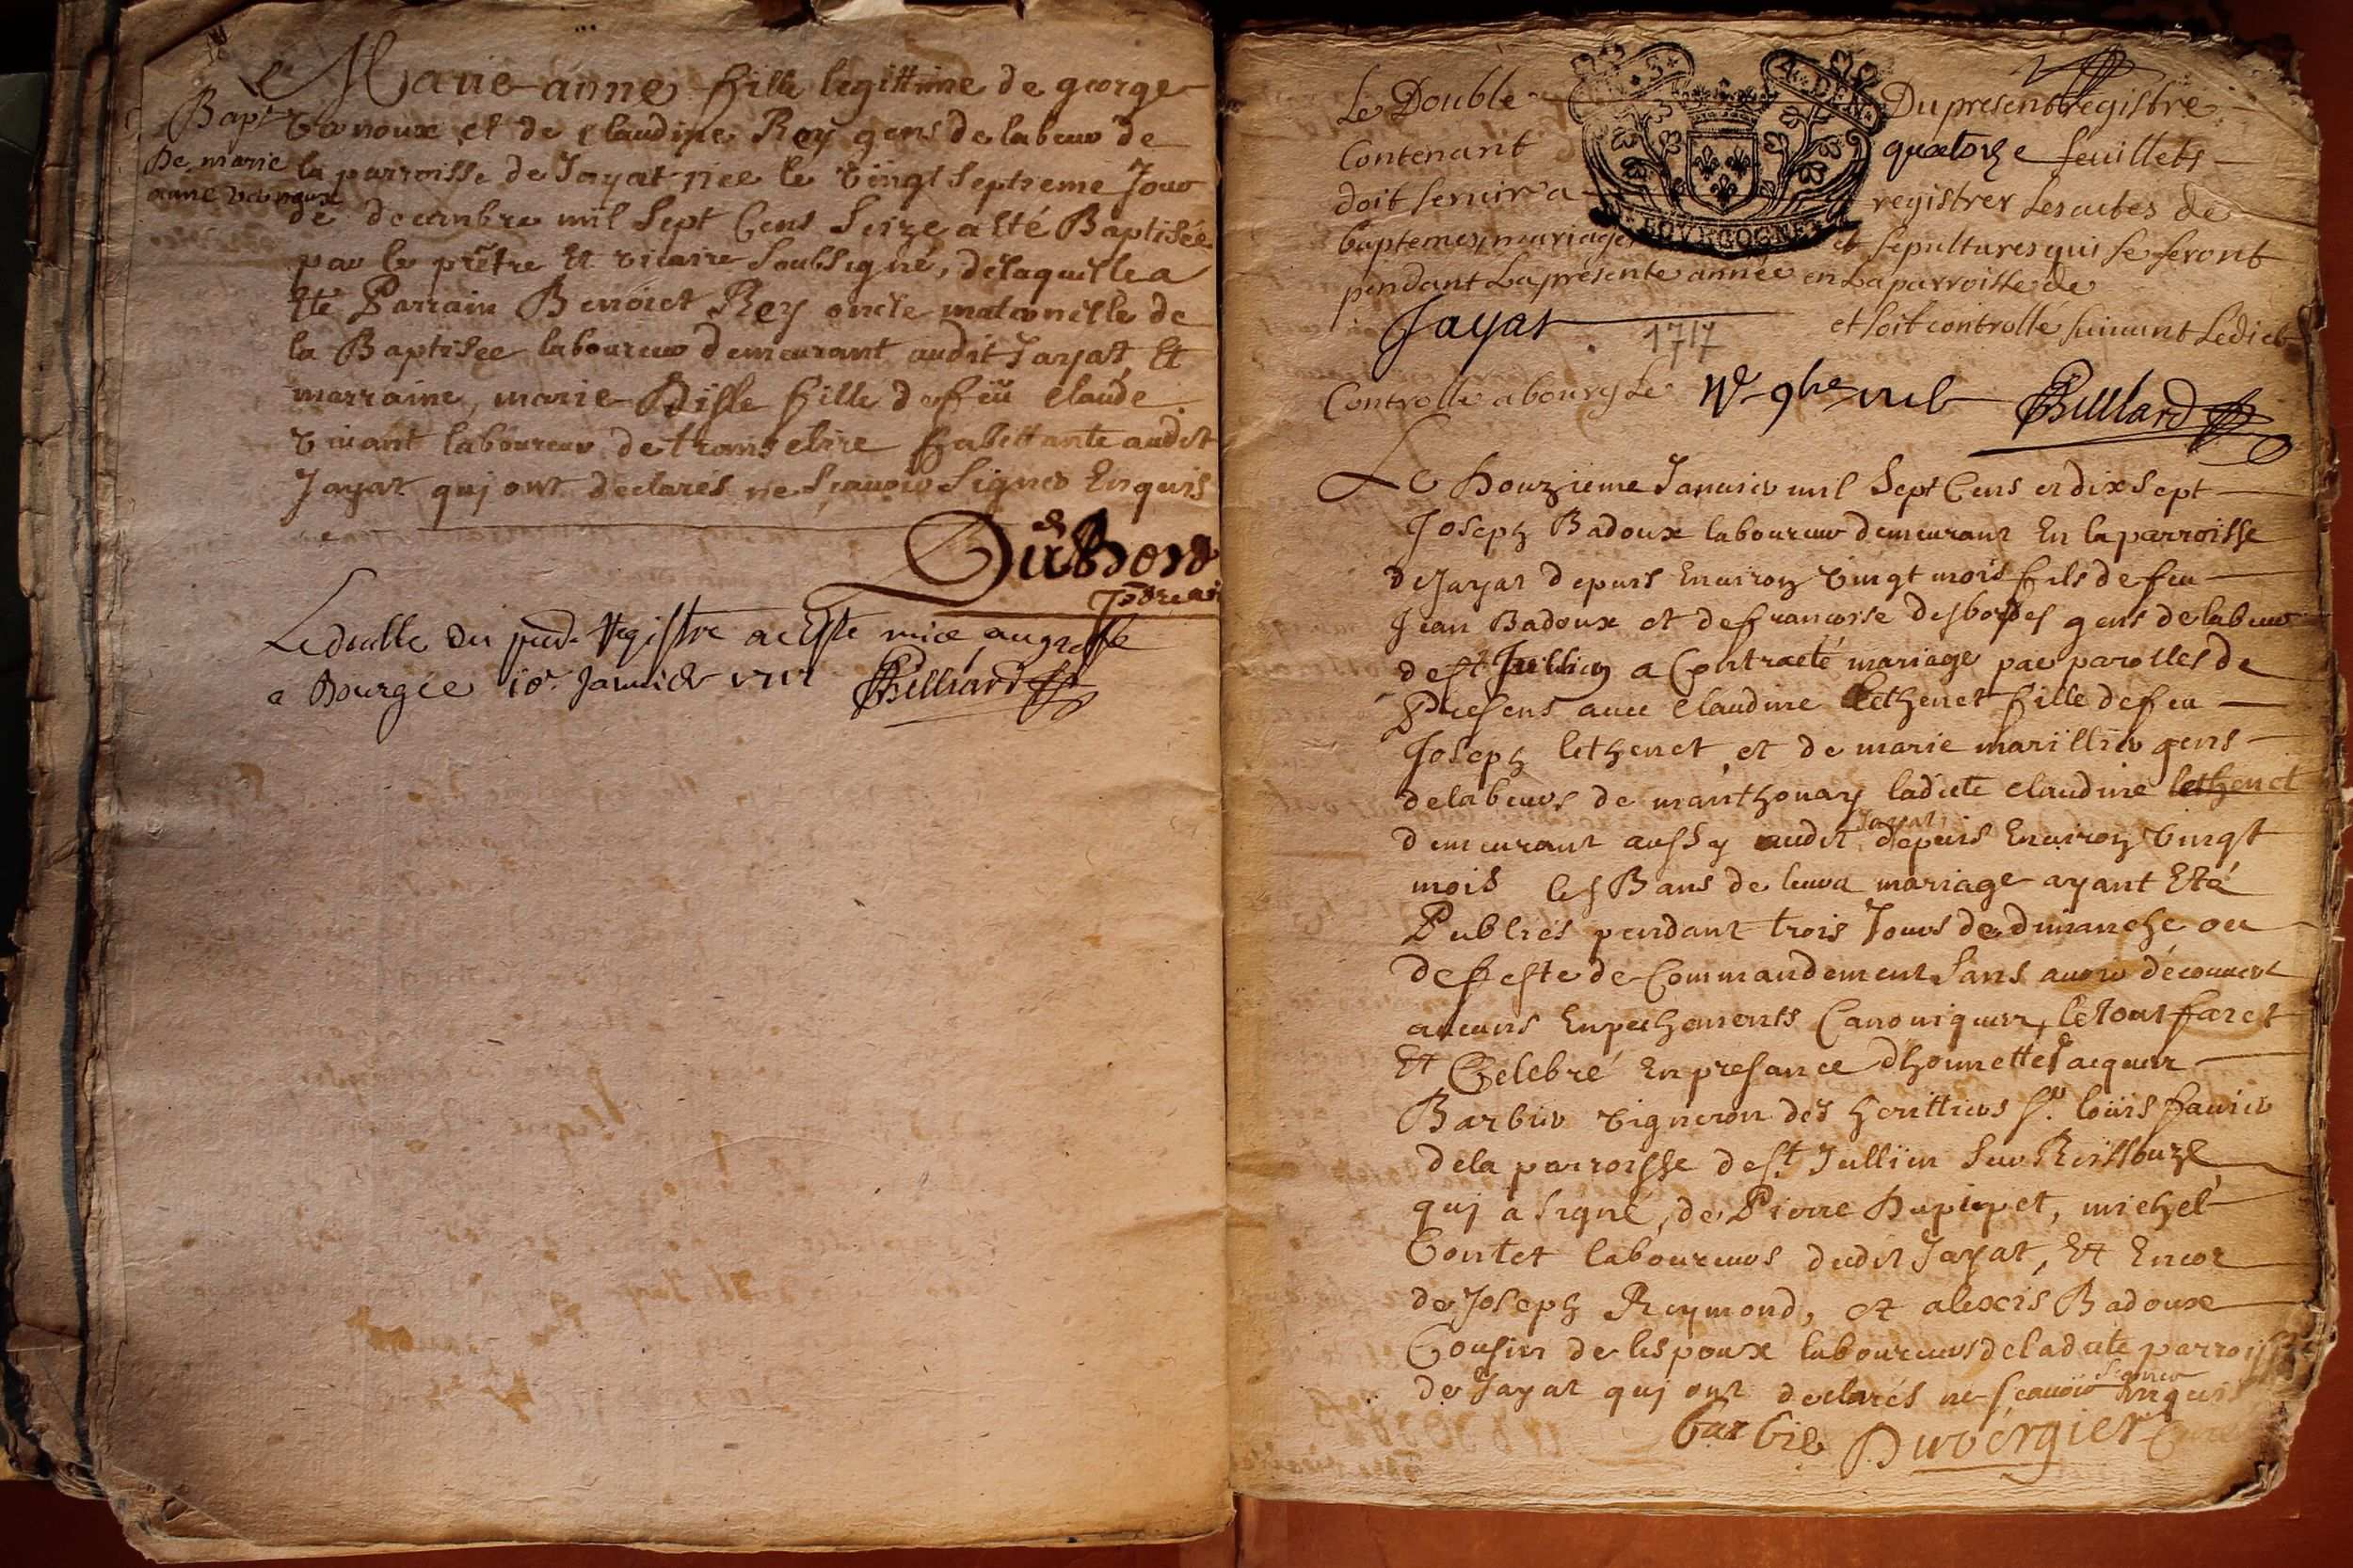 Marie anne fille legittime de george
Vernoux et de claudine Rey gens de labeur de
la parroisse de Jayat née le vingt septieme Jour
de decembre mil sept cens seize a été Baptisée
par le prêtre et vicaire soubsigné, de laquelle a
été Parrain Benoict Rey oncle maternelle de
la Baptisée laboureur demeurant audit Jayat, et
marraine, marie fille de feu claude
vivant laboureur de transclire habittante audit
Jayat quj ont declarés ne sçauoir signer Enquis
Bapt
De marie
anne vernoux
DuBord
Le double du pnt Registre a esté mise au greffe
a Bourg ce 10e Januier 1717 Billiard
Le Double Du present registre
Contenant quatorze feuillets
doit seruir a registrer les actes de
baptemes, mariages et sepultures qui se feront
pendant La presente année en La parroisse de
Jayat 1717 et soit controllé suiuant Ledict
Controllé a bourg Le 9bre Billiard
A DEN
BOVRGOGNE
Le Douzieme Januier mil sept Cens et dix sept
Joseph Badoux laboureur demeurant En la parroisse
de Jayat depuis Enuiron vingt mois fils de feu
Jean Badoux et de francoise desbordes gens de labeur
de st Jullien a Contracté mariage par parolles de
Presens auec claudine lethenet fille de feu
Joseph lethenet et de marie marillier gens
de labeurs de manthonay ladite claudine lethenet
demeurant aussy audit Jayat depuis Enuiron vingt
mois les Bans de leur mariage ayant Eté
Publiés pendant trois Jours de dimanche ou
de feste de Commandement sans auoir découuert
aucuns Enpechements Canoniques, le tout faict
Et Celebré En presance dhonnette Jacques
Barbier vigneron des herittiers sr. loüis fauier
de la parroisse de st Jullien sur Reissouze
quj a signé, de Pierre Dupupet, michel
Contet laboureurs dudit Jayat, Et Encor
de Joseph Reymond, et alexis Badoux
Cousin de lespoux laboureurs de la dite parroisse
de Jayat quj ont declarés ne sçauoir signer Enquis
barbie Duvergier